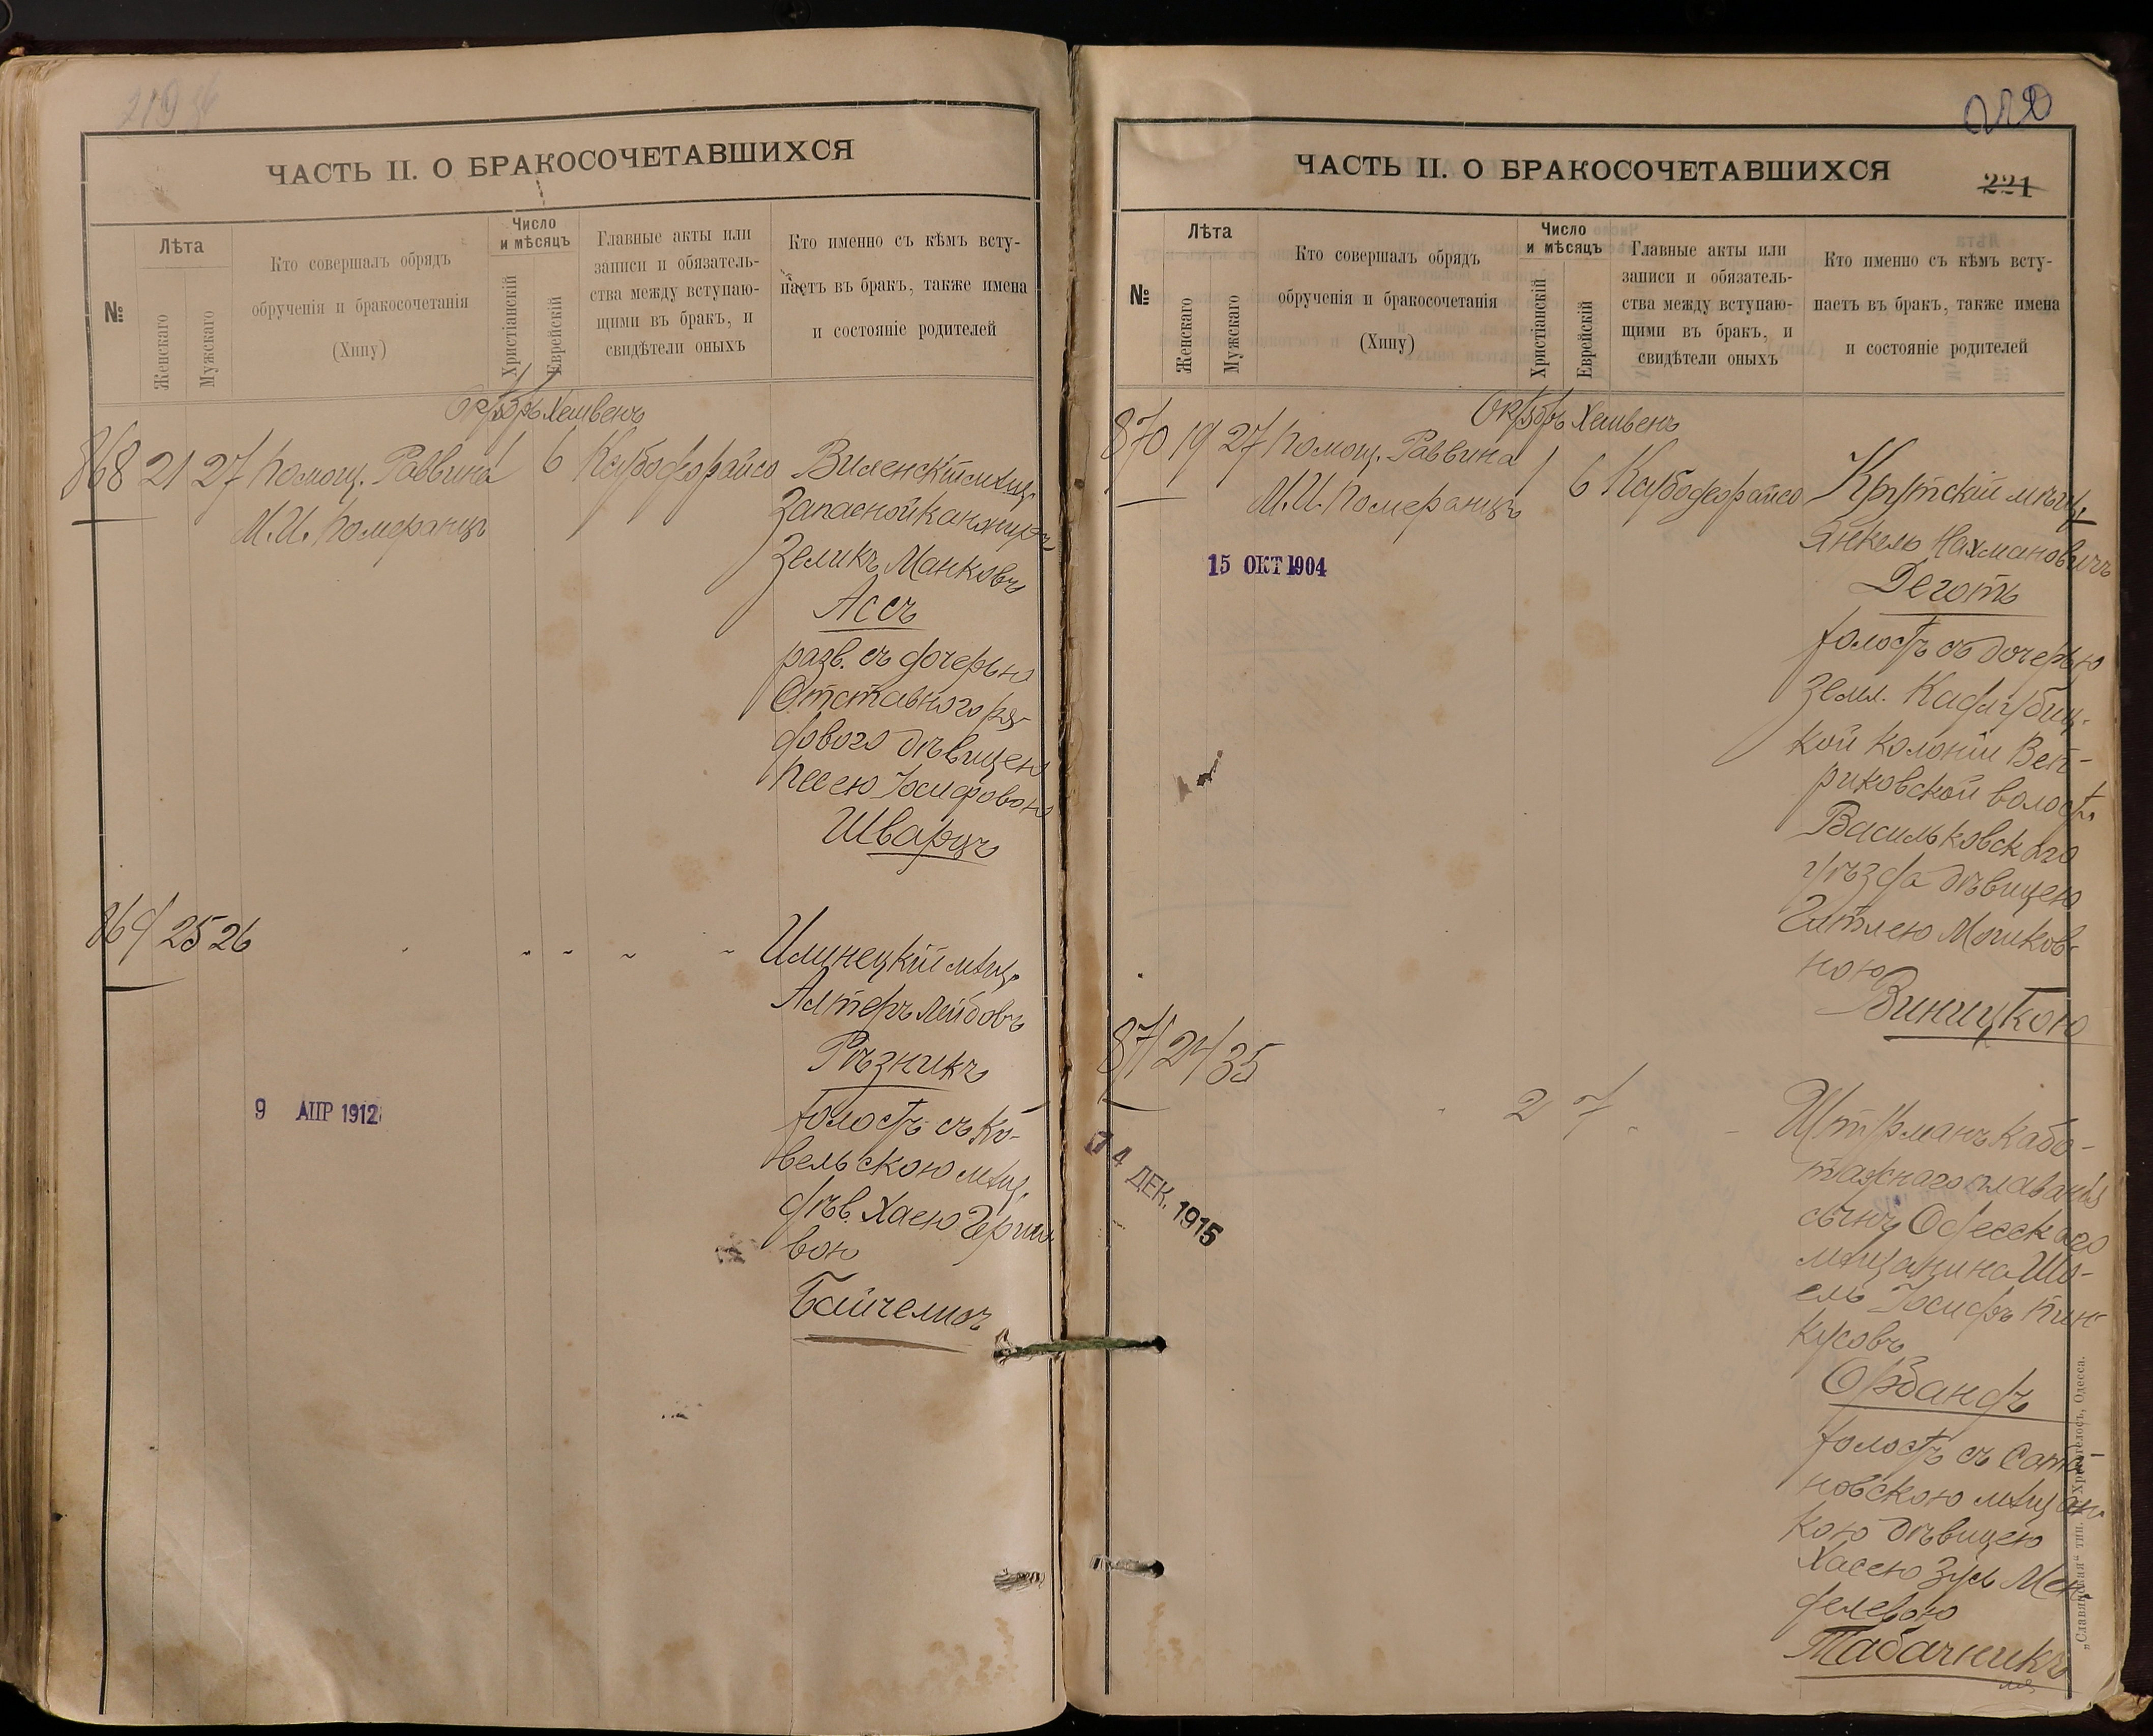 219 об
ЧАСТЬ II. О БРАКОСОЧЕТАВШИХСЯ
№
Лѣта
Женскаго
Мужскаго
Кто совершалъ обрядъ
обрученія и бракосочетанія
(Хипу)
Число
и мѣсяцъ
Христіанскій
Еврейскій
Главные акты или
записи и обязатель-
ства между вступаю-
щими въ бракъ, и
свидѣтели оныхъ
Кто именно съ кѣмъ всту-
паетъ въ бракъ, также имена
и состояніе родителей
Октябрь Хешвенъ
868 21 27 Помощ. Раввина 1 6 Ксубо дорайсо
М. И. Померанцъ
Виленскій мѣщ.
Запасной канониръ
Зеликъ Манковъ
Ассъ
разв. съ дочерью
Отставного ря-
дового дѣвицею
Песею Іосифовою
Шварцъ
869 25 26 " " " " "
Илинецкій мѣщ.
Алтеръ Лейбовъ
Рѣзникъ
холостъ съ Ко-
вельскою мѣщ.
дѣв. Хаею Герш
вою
9 АПР 1912
220
ЧАСТЬ II. О БРАКОСОЧЕТАВШИХСЯ
221
№
Лѣта
Женскаго
Мужскаго
Кто совершалъ обрядъ
обрученія и бракосочетанія
(Хипу)
Число
и мѣсяцъ
Христіанскій
Еврейскій
Главные акты или
записи и обязатель-
ства между вступаю-
щими въ бракъ, и
свидѣтели оныхъ
Кто именно съ кѣмъ всту-
паетъ въ бракъ, также имена
и состояніе родителей
Октябрь Хешвенъ
870 19 27 Помощ. Раввина 1 6 Ксубо дорайсо
М. И. Померанцъ
15 ОКТ 1904
мѣщ.
Янкель Нахмановичъ
Деготь
холостъ съ дочерью
Земл. Кадлубиц-
кой колоніи Веп-
риковской волости
Васильковскаго
уѣзда дѣвицею
Гитлею Мошков-
ною
Виницкою
871 24 35 " 2 7 " "
14 ДЕК. 1915
Штурманъ кабо-
тажнаго плаванія
сынъ Одесскаго
мѣщанина Шо-
ель Іосифъ Пин-
кусовъ
Орбандъ
холостъ съ Сата-
новскою мѣщан-
кою дѣвицею
Хасею Зусь Мен-
делевою
Табачникъ
„Славянская“ тип. Н. Хрисогелосъ, Одесса.